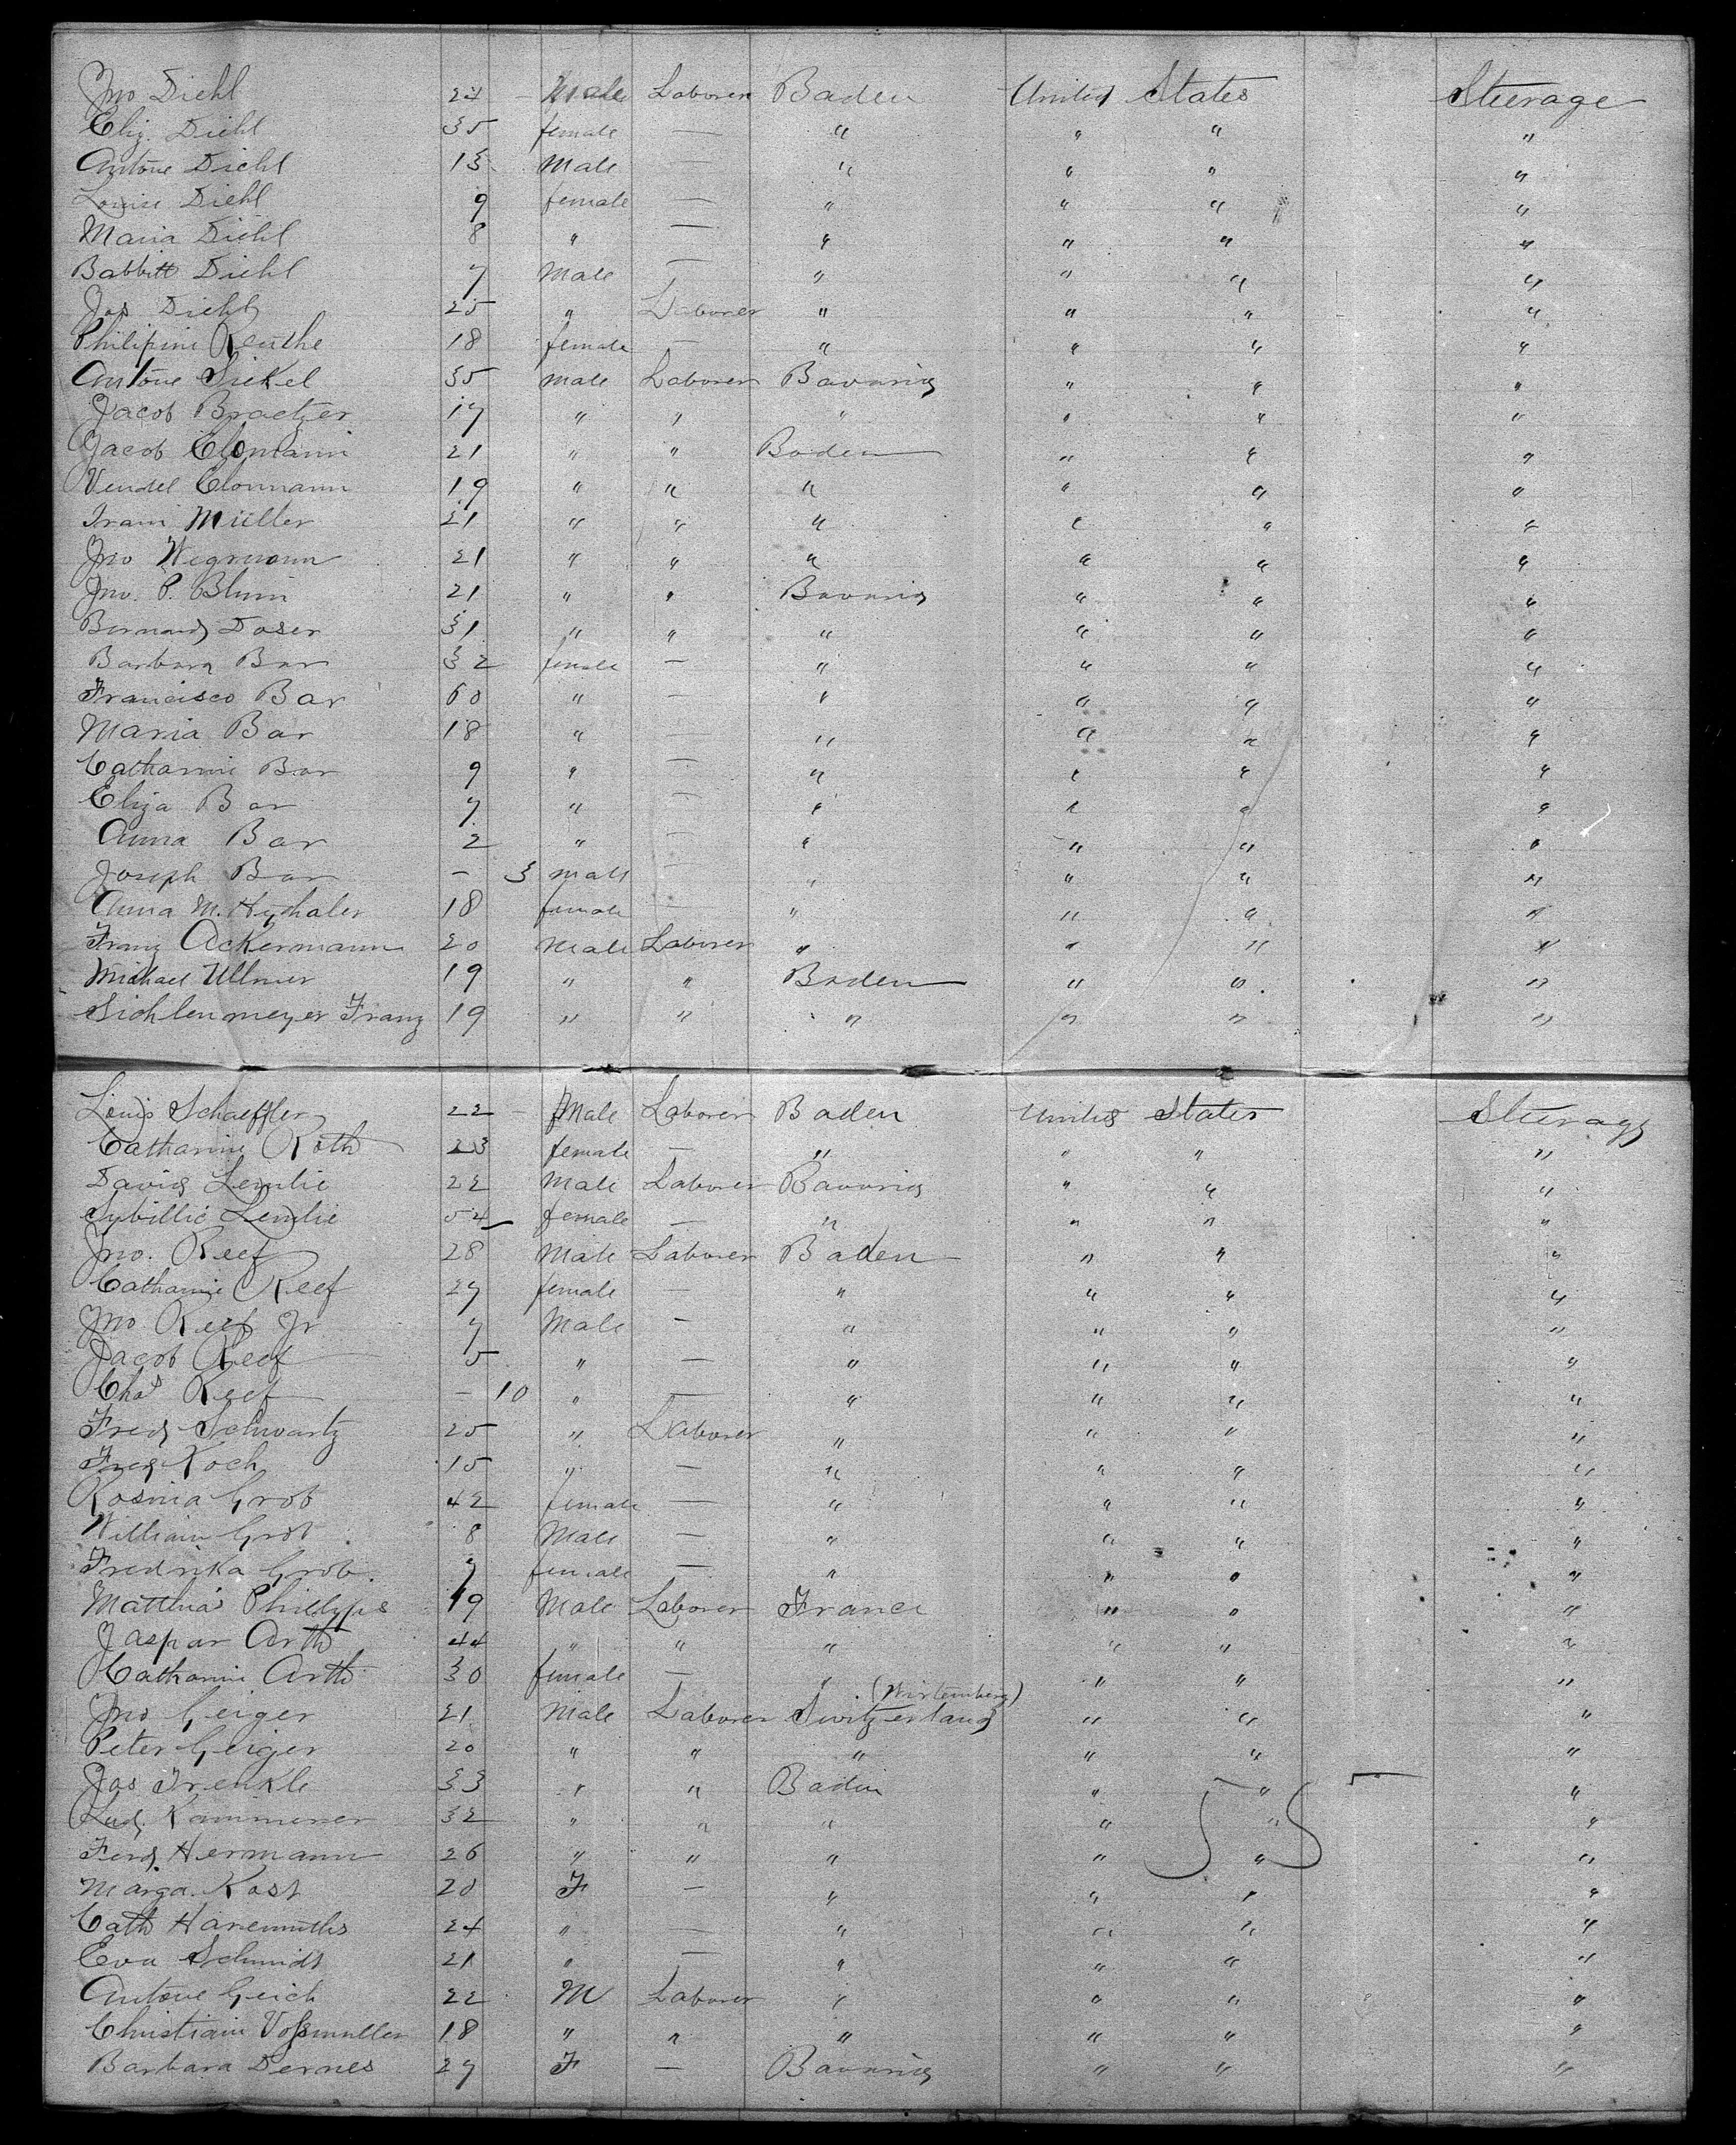 Jno Diehl 24 - Male Laborer Baden United States Steerage
Eliz. Diehl 35 female — " " " "
Antone Diehl 13 Male — " " " "
Louise Diehl 9 female — " " " "
Maria Diehl 8 " — " " " "
Babbitt Diehl 7 Male — " " " "
Jos Diehl 25 " Laborer " " " "
Philipini Reuthe 18 female — " " " "
Antone Sickel 35 male Laborer Bavaria " " "
Jacob Braetzer 17 " " " " " "
Jacob Clomann 21 " " Baden " " "
Vendel Clomann 19 " " " " " "
Müller 21 " " " " " "
Jno Wegmann 21 " " " " " "
Jno. P. Blum 21 " " Bavaria " " "
Bernard Doser 31 " " " " " "
Barbara Bar 32 female — " " " "
Francisco Bar 60 " — " " " "
Maria Bar 18 " — " " " "
Catharine Bar 9 " — " " " "
Eliza Bar 7 " — " " " "
Anna Bar 2 " — " " " "
Joseph Bar — 3 male — " " " "
Anna M. 18 female — " " " "
Franz Ackermann 20 Male Laborer " " " "
Michael Ullmer 19 " " Baden " " "
Sichlenmeyer Franz 19 " " " " " "
Louis Schaeffler 22 - Male Laborer Baden United States Steerage
Catharine Roth 23 female — " " " "
David Lemlie 22 Male Laborer Bavaria " " "
Sybillie Lemlie 54 female — " " " "
Jno. Reef 28 Male Laborer Baden " " "
Catharine Reef 27 female — " " " "
Jno Reef Jr 7 Male — " " " "
Jacob Reef 5 " — " " " "
Chas Reef — 10 " — " " " "
Fred Schwartz 25 " Laborer " " " "
Fred Koch 15 " — " " " "
Rosina Grob 42 female — " " " "
William Grob 8 Male — " " " "
Fredrika Grob. 7 female — " " " "
Matthias Phillyps 19 Male Laborer France " " "
Jaspar Arth 44 " " " " " "
Catharine Arth 30 female — " " " "
(Wirtemberg)
Jno Geiger 21 Male Laborer Switzerland " " "
Peter Geiger 20 " " " " " "
Jos Trenkle 33 " " Baden " " "
Lud. Kammerer 32 " " " " " "
Ferd. Hermann 26 " " " " " "
Marga. Kost 20 F — " " " "
Cath 24 " — " " " "
Eva Schmidt 21 " — " " " "
Antone Geich 22 M Laborer " " " "
Christian Voßmuller 18 " " " " " "
Barbara Dernes 27 F — Bavaria " " "